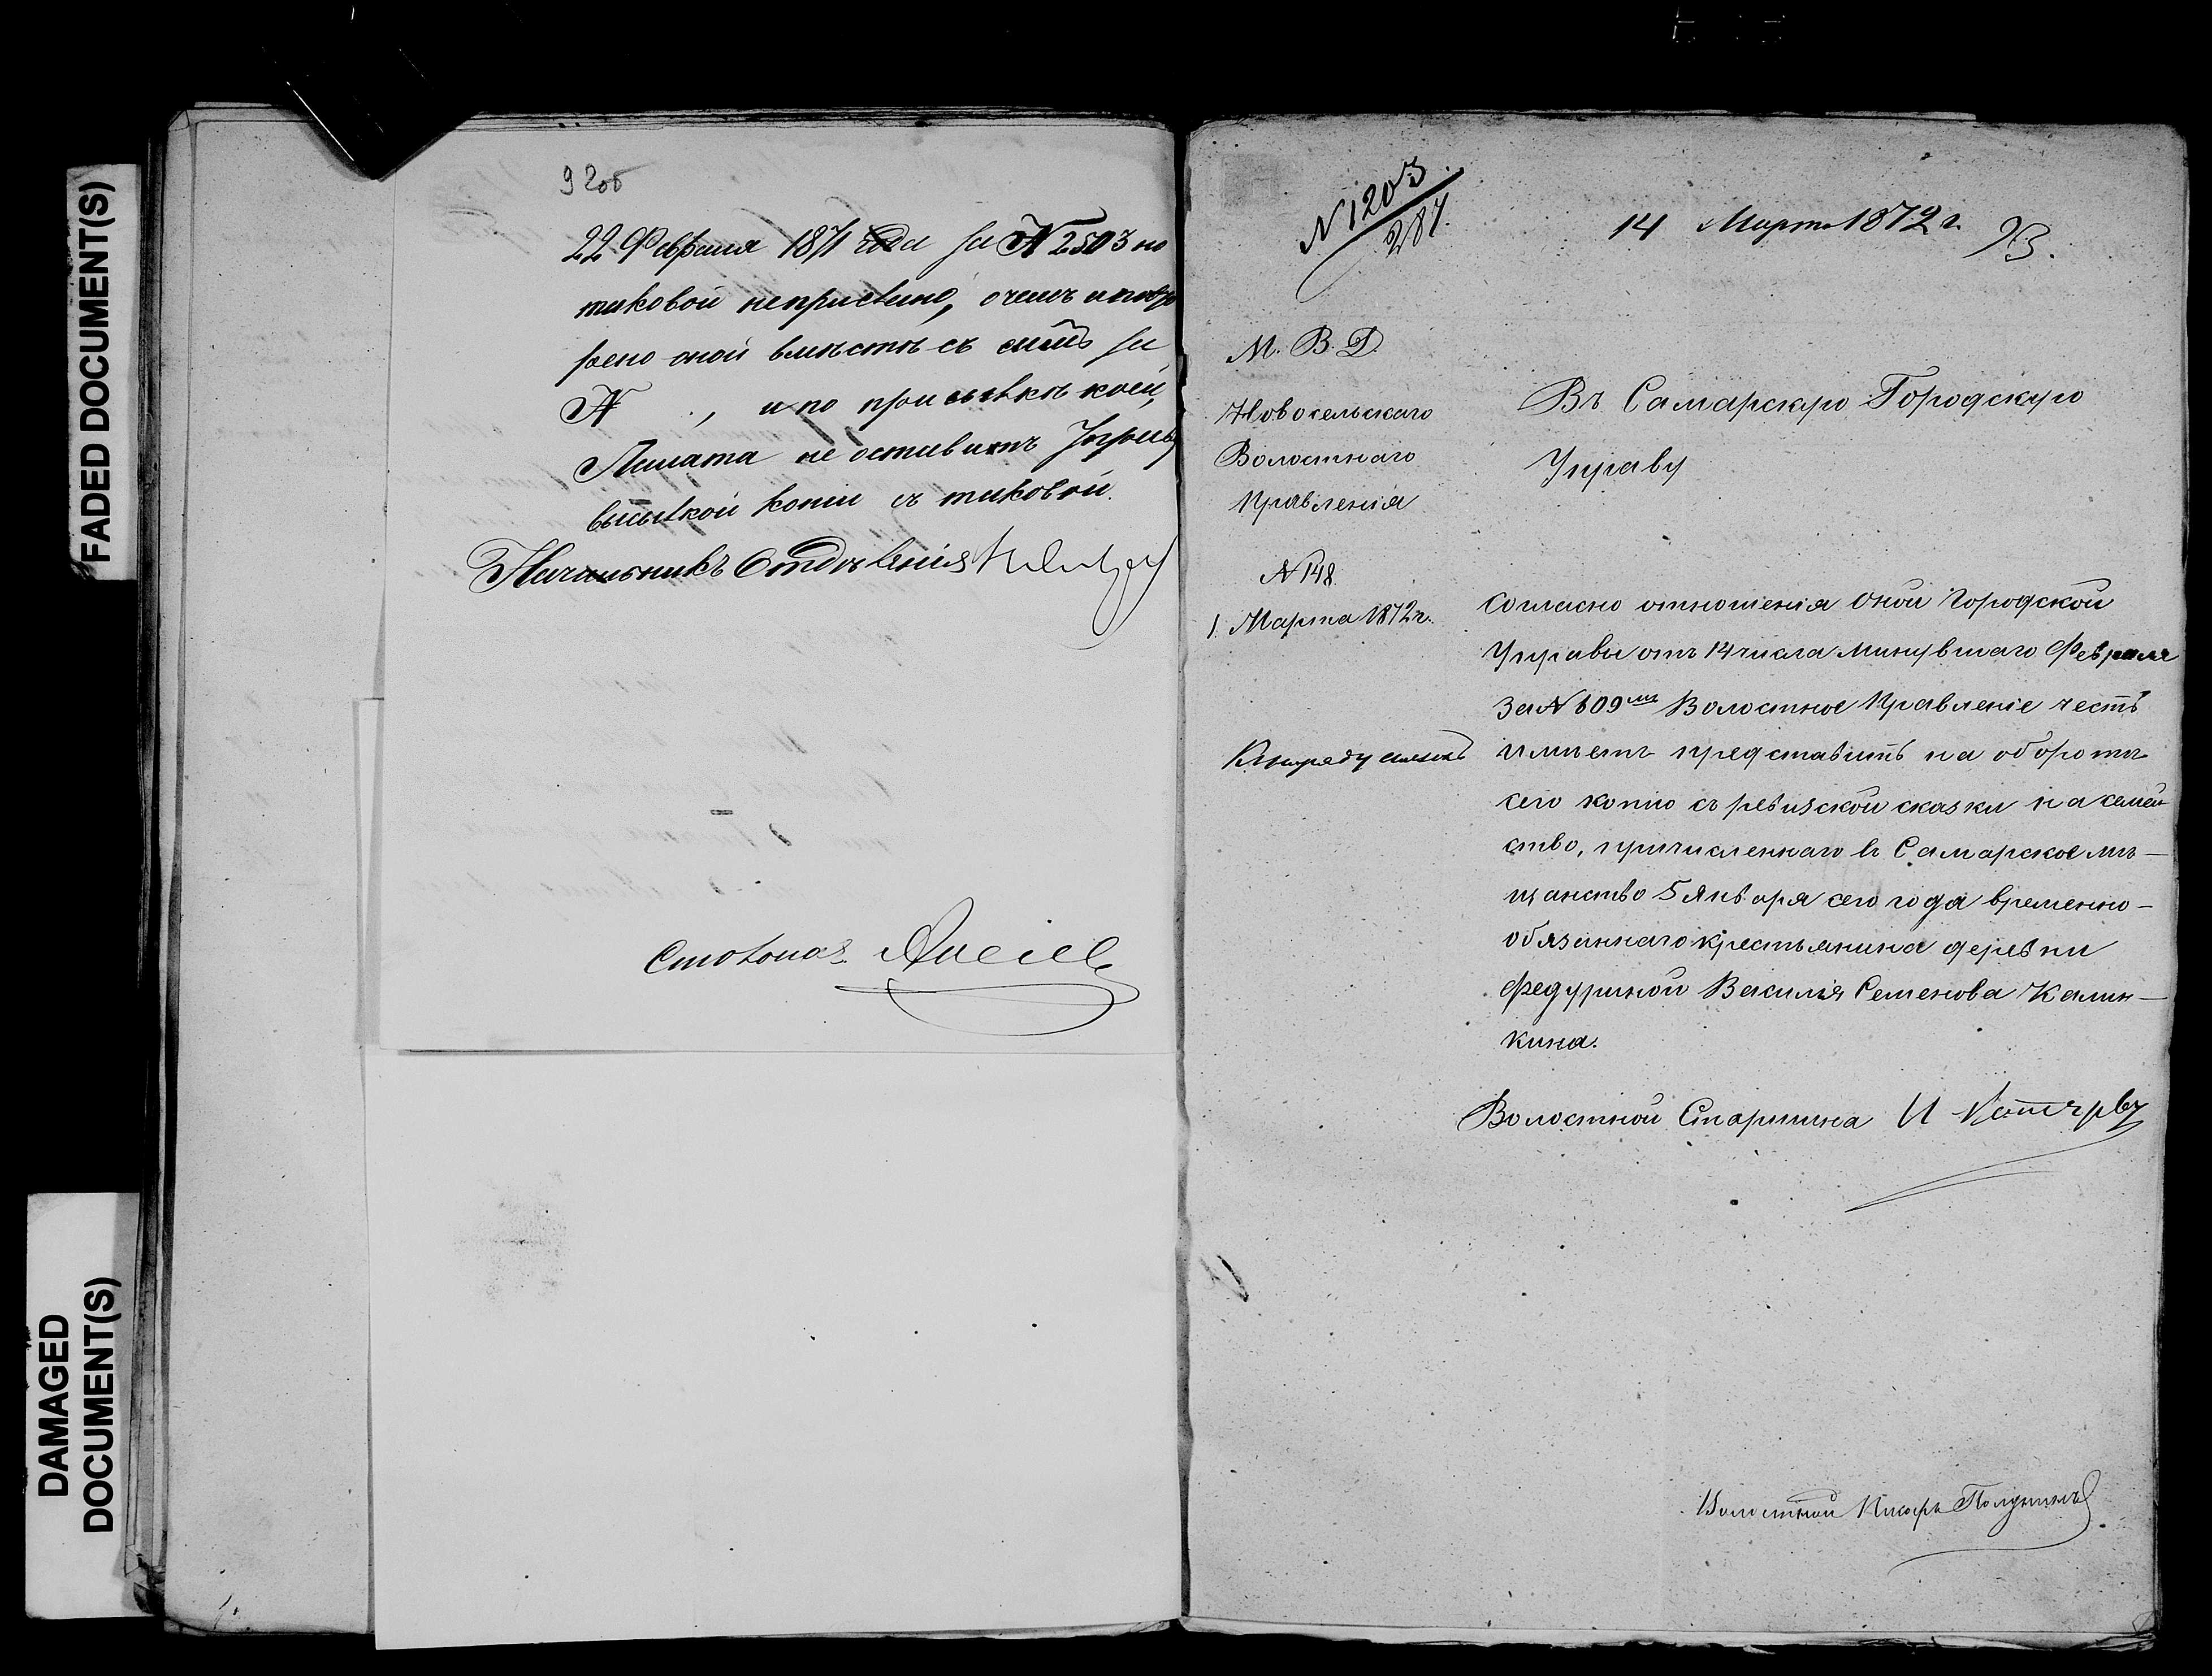 FADED DOCUMENT(S)
DAMAGED
DOCUMENT(S)
92об
22 Февраля 1871 года за № 2503 но
таковой неприслано, о чемъ и повто
рено оной вместѣ съ симъ за
№ , и по присылкѣ коей,
Палата не оставитъ Управу
высылкой копiи съ таковой.
Начальникъ Отдѣленiя
Столонач.
№ 1203
284.
14 Марта 1872 г.
93.
М. В. Д.
Новосельскаго
Волостнаго
Правленiя
№ 148
1 Марта 1872 г.
Въ Самарскую Городскую
Управу
Согласно отношенiя оной Городской
Управы отъ 14 числа минувшаго Февраля
За № 609мъ Волостное Правленiе честь
имѣетъ представить на оборотѣ
сего копiю съ ревизской сказки на семей
ство, причисленнаго въ Самарское мѣ-
щанство 5 Января сего года временно-
обязаннаго крестьянина деревни
Федуриной Василiя Семенова Калин-
кина.
Волостной Старшина И
Волостной Писарь